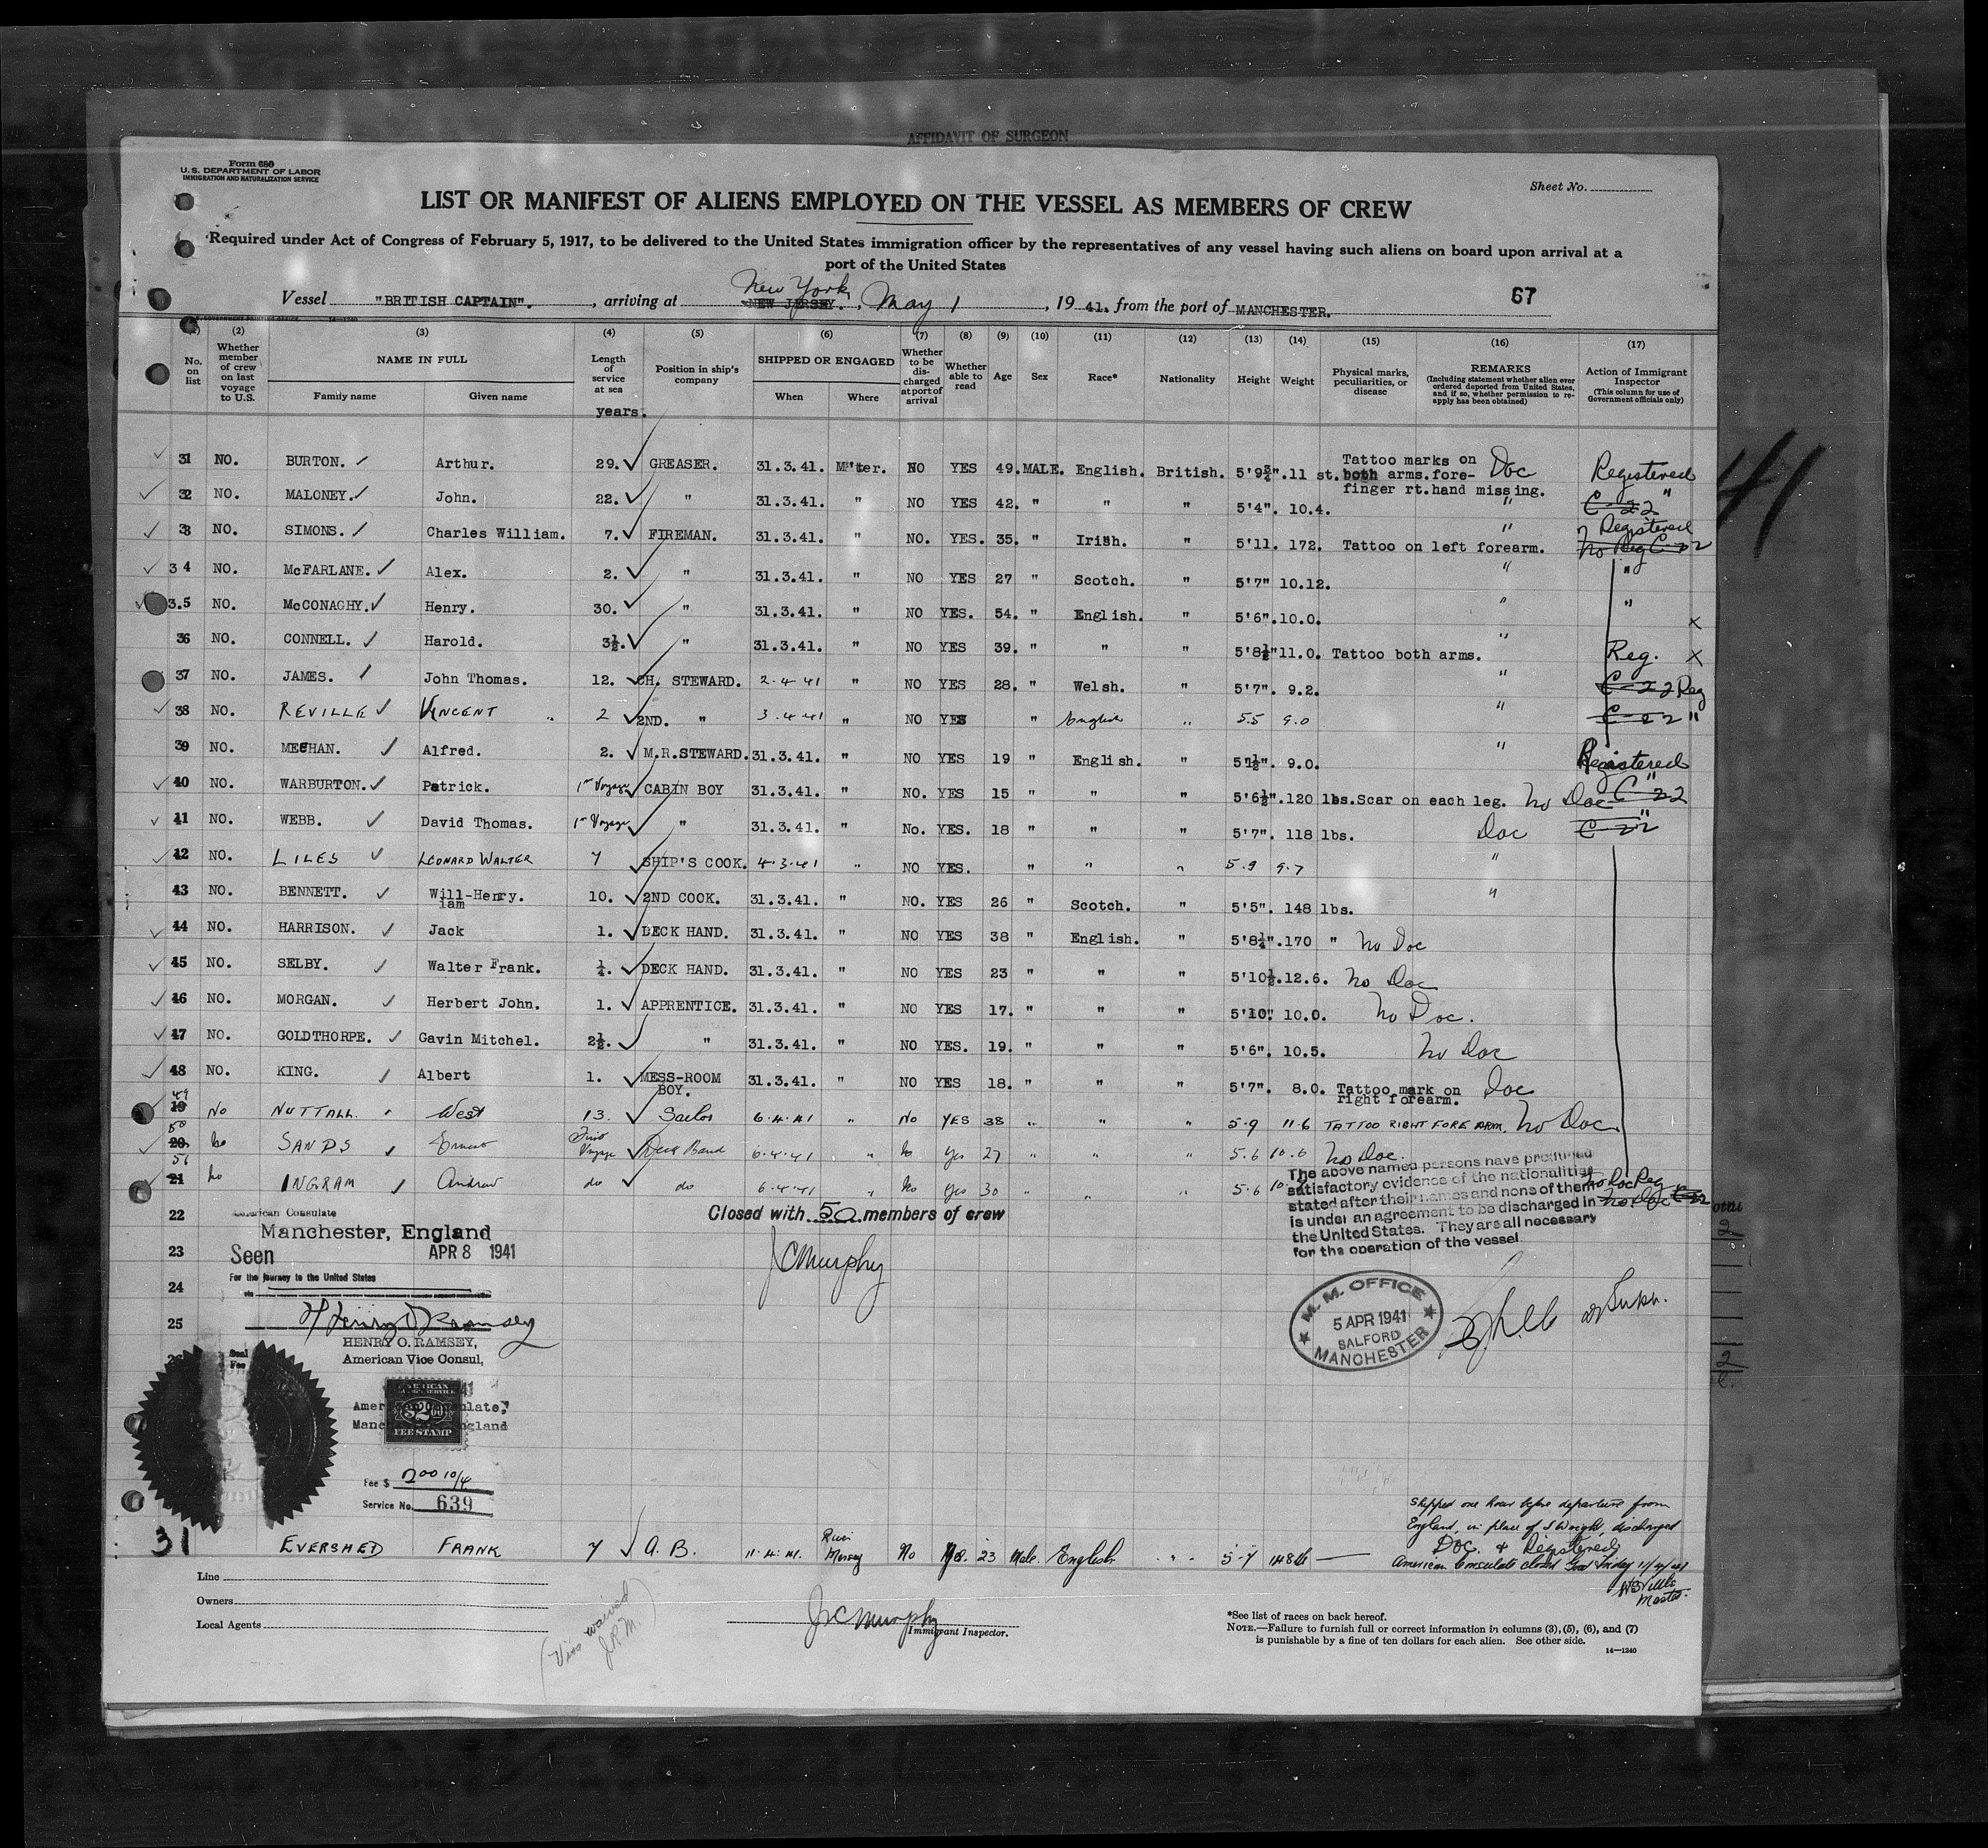 AFFIDAVIT OF SURGEON
Form 680
U.S. DEPARTMENT OF LABOR
IMMIGRATION AND NATURALIZATION SERVICE
Sheet No.
LIST OR MANIFEST OF ALIENS EMPLOYED ON THE VESSEL AS MEMBERS OF CREW
Required under Act of Congress of February 5, 1917, to be delivered to the United States immigration officer by the representatives of any vessel having such aliens on board upon arrival at a
port of the United States
New York
Vessel "BRITISH CAPTAIN". , arriving at NEW JERSEY. , May 1 , 19 41, from the port of MANCHESTER.
67
(2) (3) (4) (5) (6) (7) (8) (9) (10) (11) (12) (13) (14) (15) (16) (17)
No. on list
Whether member of crew on last voyage to U.S.
NAME IN FULL
Family name
Given name
Length of service at sea
years.
Position in ship's company
SHIPPED OR ENGAGED
When
Where
Whether to be discharged at port of arrival
Whether able to read
Age
Sex
Race*
Nationality
Height
Weight
Physical marks, peculiarities, or disease
REMARKS
(Including statement whether alien ever ordered deported from United States, and if so, whether permission to reapply has been obtained)
Action of Immigrant Inspector
(This column for use of Government officials only)
31 NO. BURTON. Arthur. 29. GREASER. 31.3.41. M'ter. NO YES 49. MALE. English. British. 5'9½". 11 st. Tattoo marks on both arms. fore-finger rt. hand missing. Doc Registered
32 NO. MALONEY. John. 22. " 31.3.41. " NO YES 42. " " " 5'4". 10.4. " C-22 "
33 NO. SIMONS. Charles William. 7. FIREMAN. 31.3.41. " NO. YES. 35. " Irish. " 5'11. 172. Tattoo on left forearm. " Registered No Reg C-22
34 NO. McFARLANE. Alex. 2. " 31.3.41. " NO YES 27 " Scotch. " 5'7" 10.12. " "
3.5 NO. McCONAGHY. Henry. 30. " 31.3.41. " NO YES. 54. " English. " 5'6". 10.0. " " X
36 NO. CONNELL. Harold. 3½. " 31.3.41. " NO YES 39. " " " 5'8½" 11.0. Tattoo both arms. " Reg. X
37 NO. JAMES. John Thomas. 12. CH. STEWARD. 2.4.41 " NO YES 28. " Welsh. " 5'7". 9.2. " C-22 Reg
38 NO. REVILLE VINCENT 2 2ND. " 3.4.41 " NO YES " English " 5.5 9.0 " C-22 "
39 NO. MEEHAN. Alfred. 2. M.R.STEWARD. 31.3.41. " NO YES 19 " English. " 9.0. " Registered
40 NO. WARBURTON. Patrick. 1st Voyage CABIN BOY 31.3.41. " NO. YES 15 " " " 5'6½". 120 lbs. Scar on each leg. No Doc C-22 "
41 NO. WEBB. David Thomas. 1st Voyage " 31.3.41. " No. YES. 18 " " " 5'7". 118 lbs. Doc C-22 "
42 NO. LILES LEONARD WALTER 7 SHIP'S COOK. 4.3.41 " NO YES. " " " 5.9 9.7 "
43 NO. BENNETT. Will-Henry. iam 10. 2ND COOK. 31.3.41. " NO. YES 26 " Scotch. " 5'5". 148 lbs. "
44 NO. HARRISON. Jack 1. DECK HAND. 31.3.41. " NO YES 38 " English. " 5'8½". 170 " No Doc
45 NO. SELBY. Walter Frank. ¼. DECK HAND. 31.3.41. " NO YES 23 " " " 5'10½. 12.6. No Doc
46 NO. MORGAN. Herbert John. 1. APPRENTICE. 31.3.41. " NO YES 17. " " " 5'10" 10.0. No Doc.
47 NO. GOLDTHORPE. Gavin Mitchel. 2½. " 31.3.41. " NO YES. 19. " " " 5'6". 10.5. No Doc
48 NO. KING. Albert 1. MESS-ROOM BOY. 31.3.41. " NO YES 18. " " " 5'7". 8.0. Tattoo mark on right forearm. Doc
49 19 No NUTTALL. West 13. Sailor 6.4.41 " No YES 38 " " " 5.9 11.6 TATTOO RIGHT FORE ARM. No Doc.
50 20. No SANDS Ernest First Voyage Deck Hand 6.4.41 " No Yes 27 " " " 5.6 10.6 No Doc.
51 21 No INGRAM Andrew do do 6.4.41 " No Yes 30 " " " 5.6 No Doc Reg No Doc C-22
The above named persons have produced
satisfactory evidence of the nationalities
stated after their names and none of them
is under an agreement to be discharged in
the United States. They are all necessary
for the operation of the vessel.
22 American Consulate
Closed with 50 members of crew
Manchester, England
23 Seen APR 8 1941
J C Murphy
For the journey to the United States
24 via
25 Henry O Ramsey
HENRY O. RAMSEY,
American Vice Consul,
M. M. OFFICE
5 APR 1941
SALFORD
MANCHESTER
Supt.
26
Seal
Fee
American Consulate,
Manchester, England
AMERICAN
$2.00
FEE STAMP
Fee $ 2.00 10/4
Service No. 639
Shipped one hour before departure from
England, in place of J Wright, discharged
Doc. & Registered
31 EVERSHED FRANK 7 A. B. 11.4.41. River Mersey No Yes. 23 Male. English " 5-7 148 lb —
American Consulate closed Good Friday 11/4/41
Master.
Line
Owners
Local Agents
(Visa waived J.R.M.)
J C Murphy
Immigrant Inspector.
*See list of races on back hereof.
NOTE.—Failure to furnish full or correct information in columns (3), (5), (6), and (7)
is punishable by a fine of ten dollars for each alien. See other side.
14—1240
41